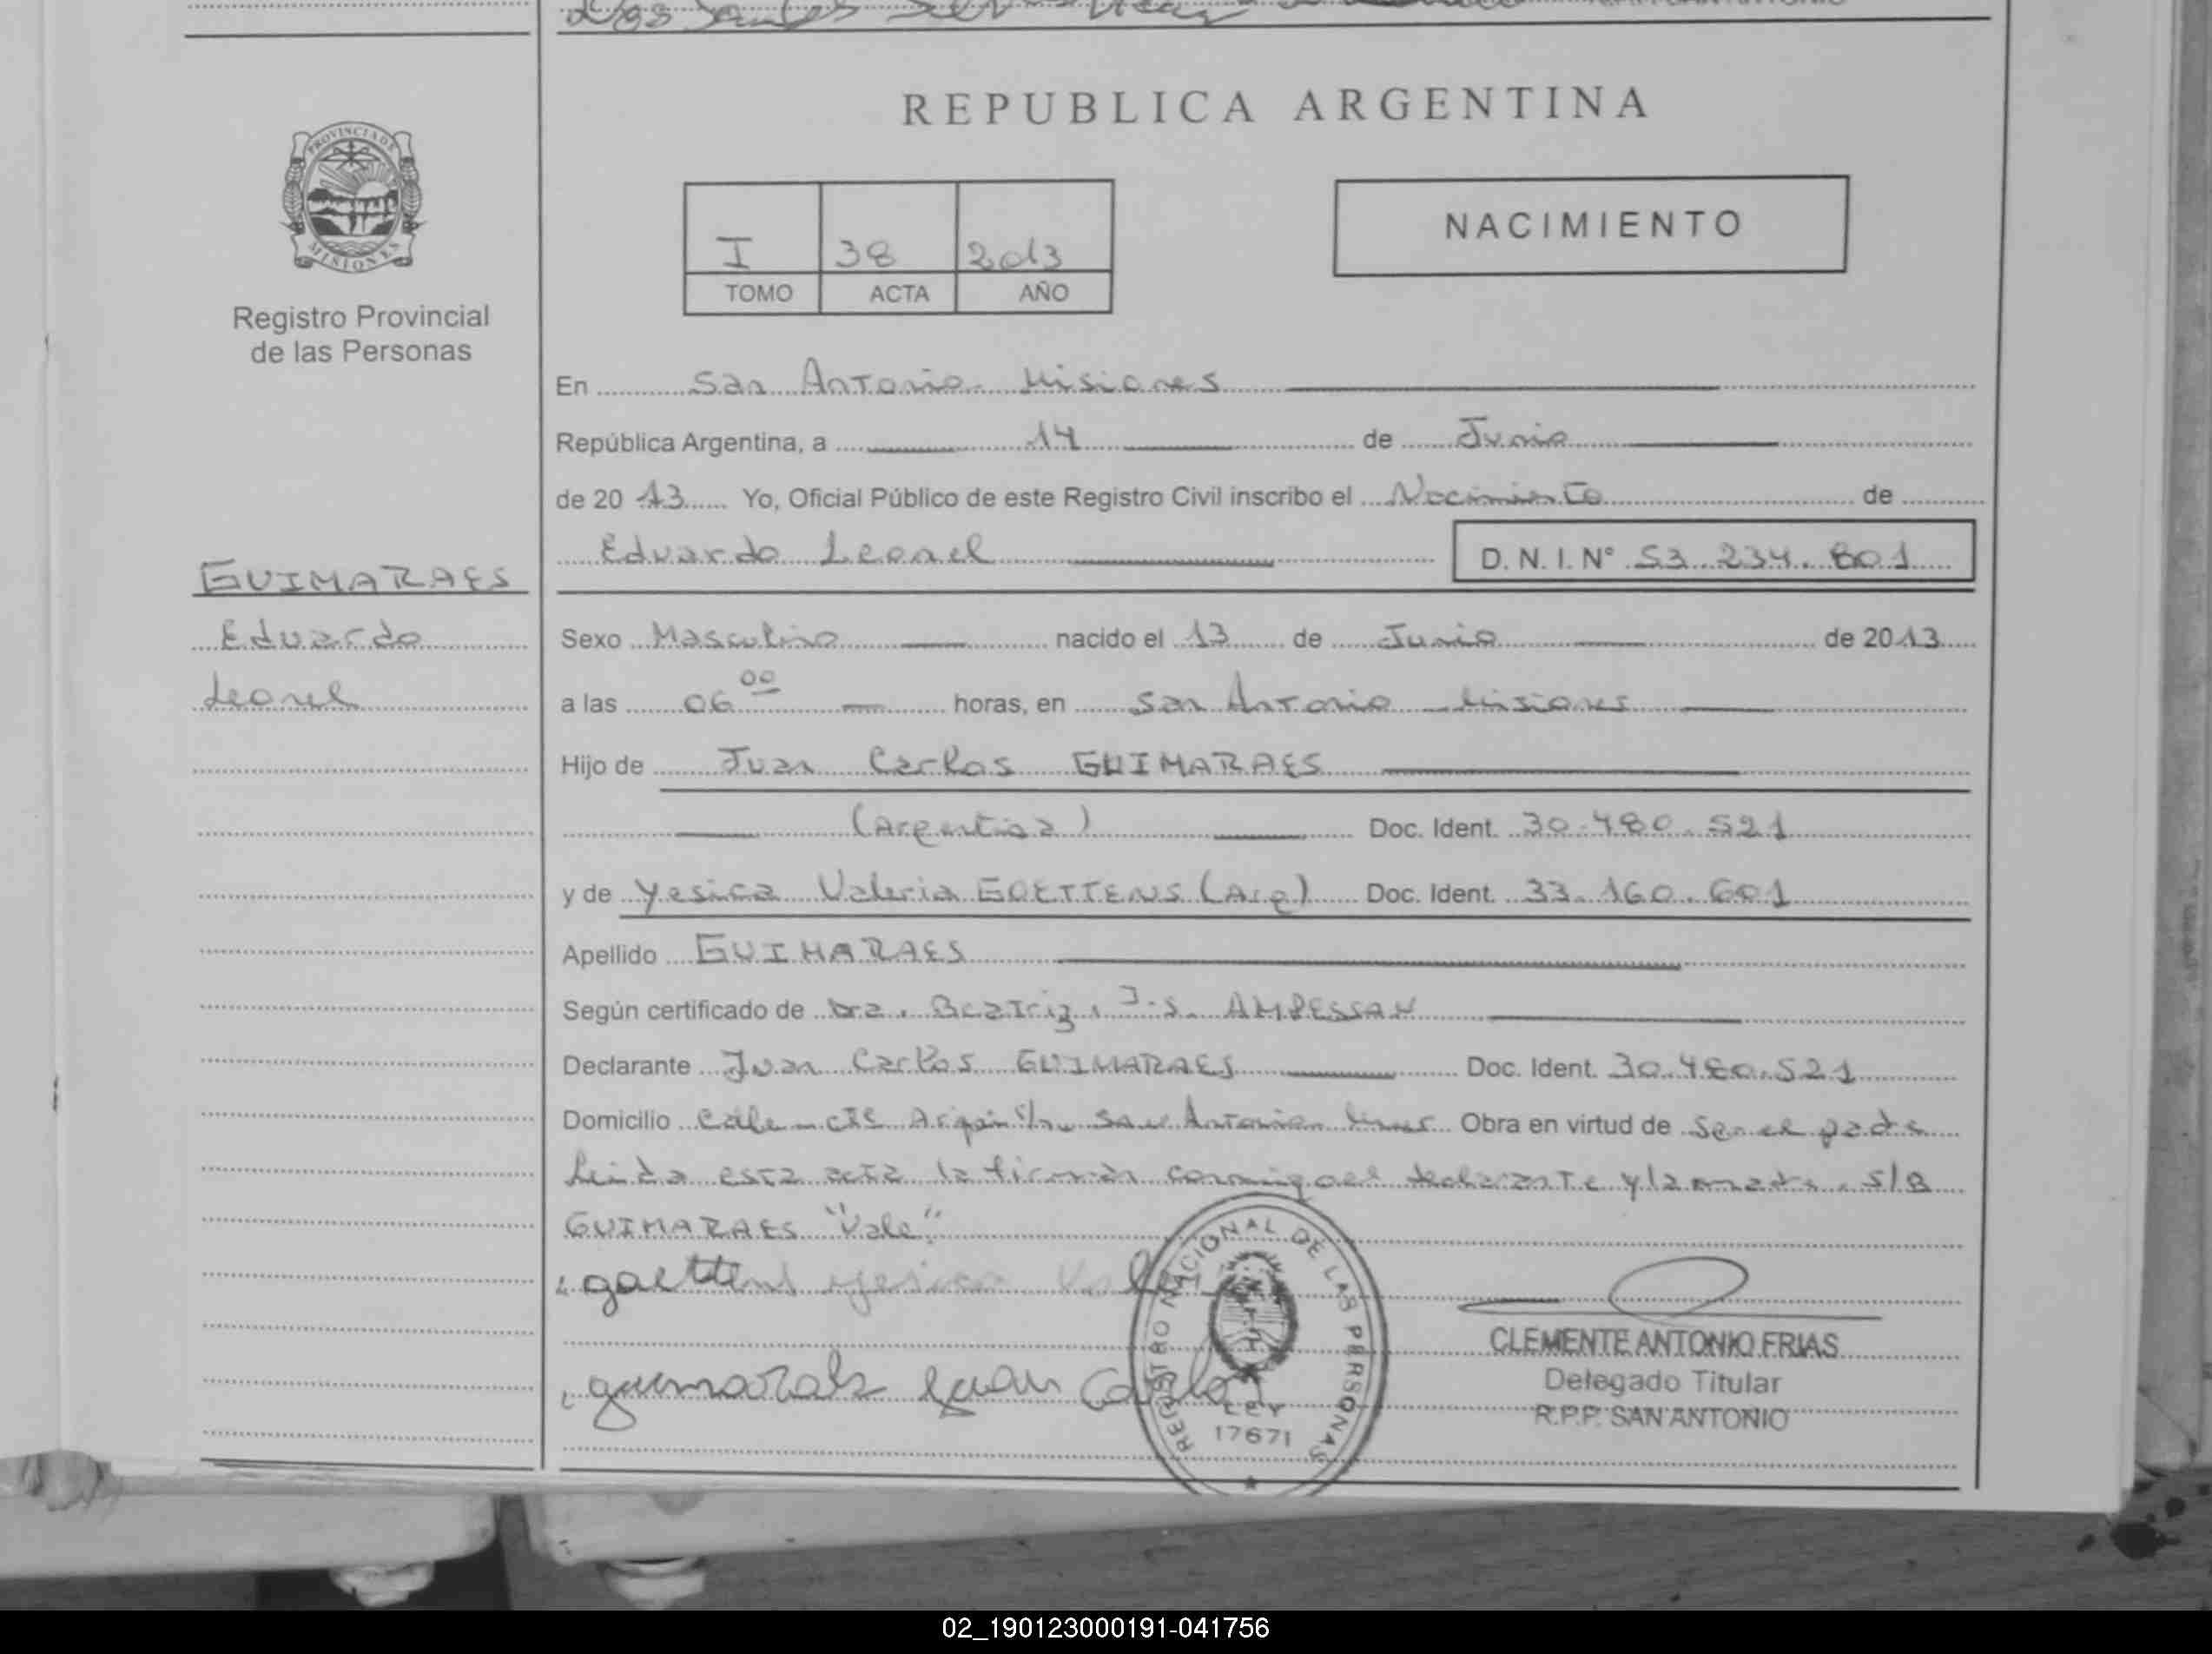 REPUBLICA ARGENTINA
PROVINCIA DE
MISIONES
Registro Provincial
de las Personas
NACIMIENTO
I 38 2013
TOMO ACTA AÑO
En San Antonio Misiones
República Argentina, a 14 de Junio
de 2013 Yo, Oficial Público de este Registro Civil inscribo el Nacimiento de
Eduardo Leonel D. N. I. N° 53.234.801
GUIMARAES
Eduardo
Leonel
Sexo Masculino nacido el 13 de Junio de 2013
a las 06 00 horas, en San Antonio Misiones
Hijo de Juan Carlos GUIMARAES
(Argentina) Doc. Ident. 30.480.521
y de Yesica Valeria GOETTENS (Arg) Doc. Ident. 33.160.601
Apellido GUIMARAES
Según certificado de Dra. Beatriz J.S. AMPESSAN
Declarante Juan Carlos GUIMARAES Doc. Ident. 30.480.521
Domicilio Calle San Antonio Obra en virtud de Ser el padre
Leida esta acta la firman conmigo el declarante y la madre. S/B
GUIMARAES "Vale"
goettens yesica
guimaraes Juan Carlos
REGISTRO NACIONAL DE LAS PERSONAS
LEY
17671
CLEMENTE ANTONIO FRIAS
Delegado Titular
R.P.P. SAN ANTONIO
02_190123000191-041756